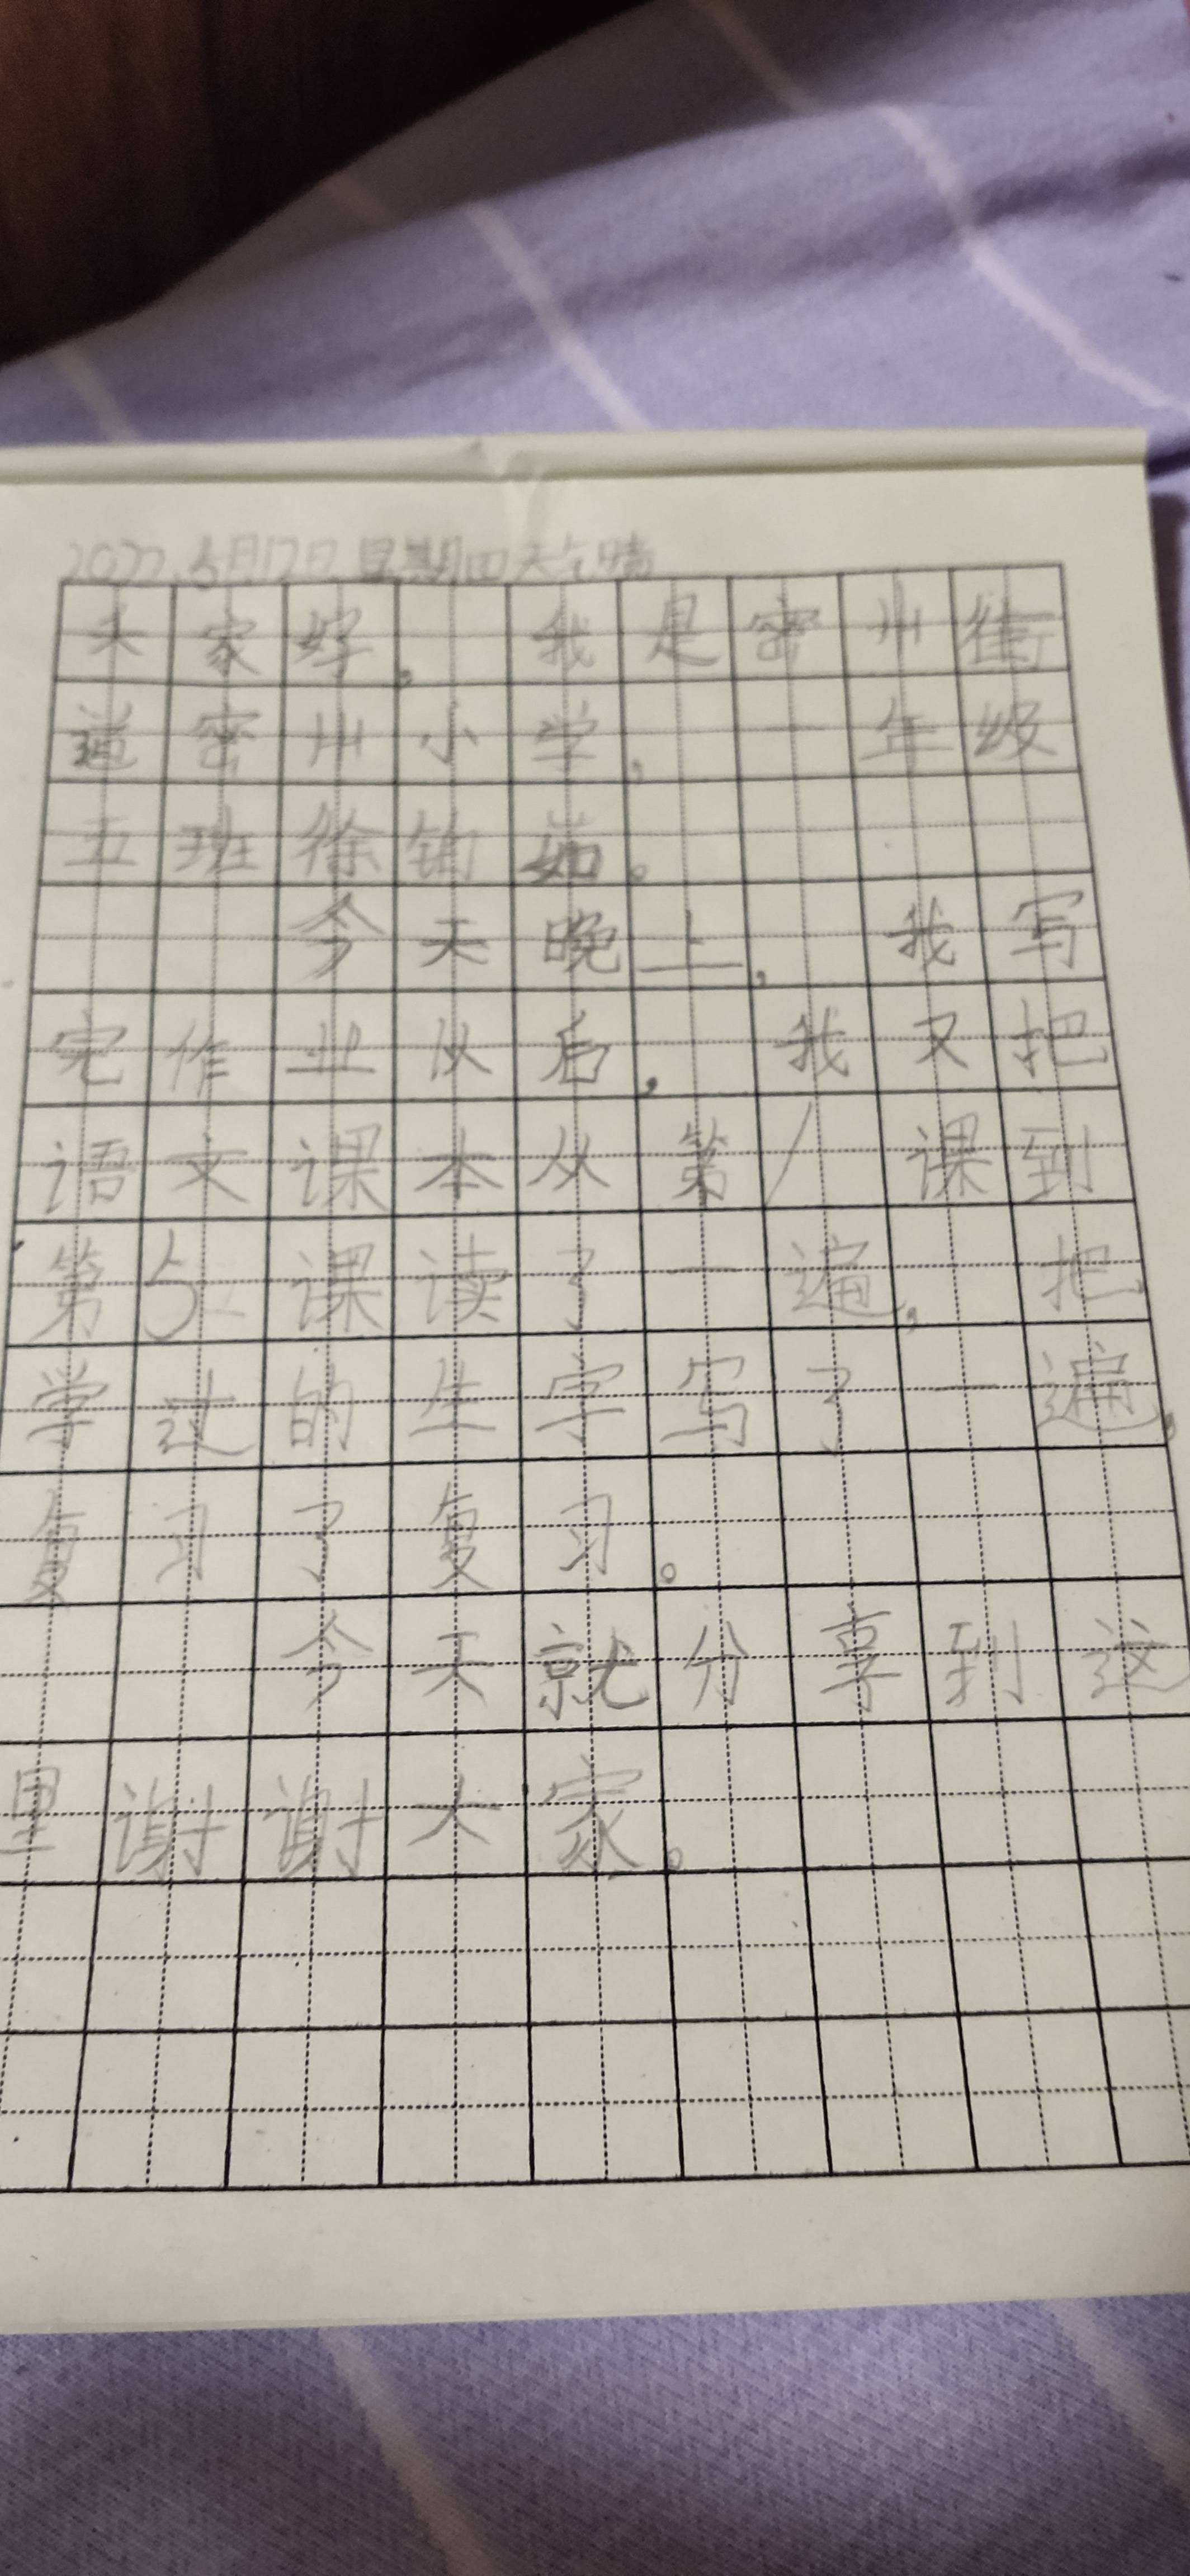 2022.5月12日星期四天气晴
大家好。我是密州街
道密州小学,一年级
五班徐铂茹。
今天晚上,我写
完作业以后,我又把
语文课本从第1课到
第5课读了一遍,把
学过的生字写了一遍,
复习了复习。
今天就分享到这
里谢谢大家。